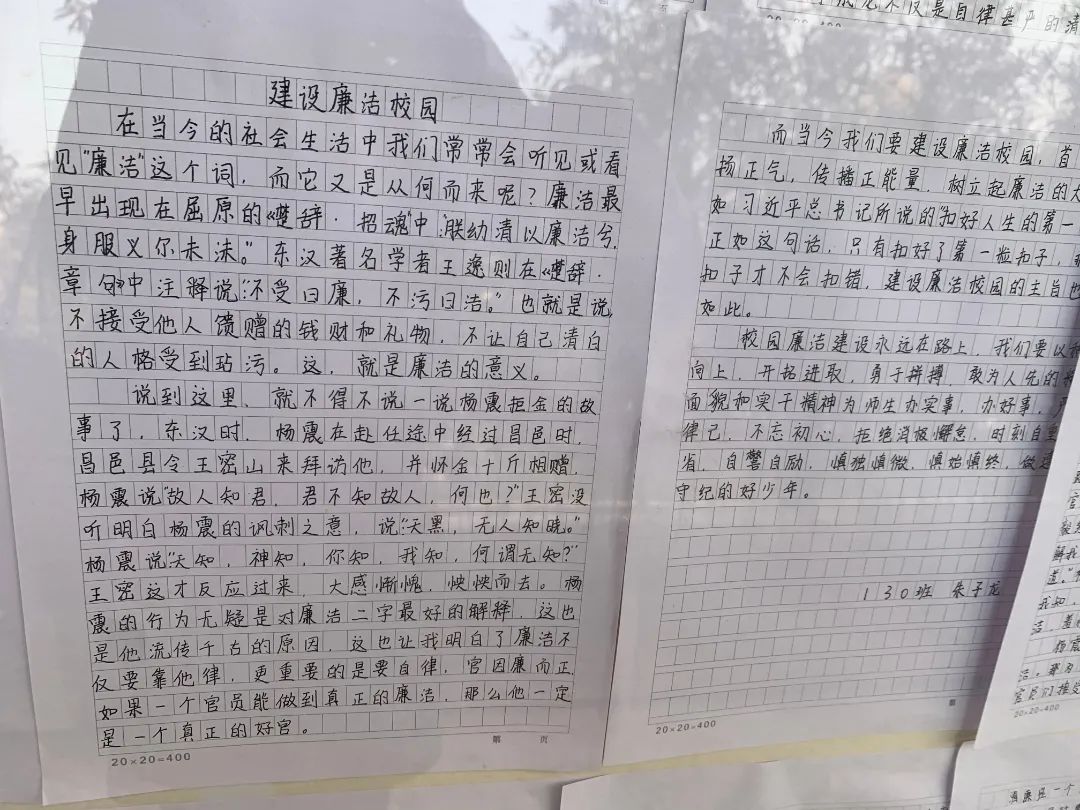 建设廉洁校园
在当今的社会生活中我们常常会听见或看
见"廉洁"这个词，而它又是从何而来呢？廉洁最
早出现在屈原的《楚辞·招魂》中："联幼清以廉洁兮，
身服义尔未沫。"东汉著名学者王逸则在《楚辞·
章句》中注释说："不受曰廉，不污曰洁。"也就是说，
不接受他人馈赠的钱财和礼物，不让自己清白
的人格受到玷污。这，就是廉洁的意义。
说到这里，就不得不说一说杨震拒金的故
事了，东汉时，杨震在赴任途中经过昌邑时，
昌邑县令王密山来拜访他，并怀金十斤相赠，
杨震说："故人知君，君不知故人，何也？"王密没
听明白杨震的讽刺之意，说："天黑，无人知晓。"
杨震说："天知，神知，你知，我知，何谓无知？"
王密这才反应过来，大感惭愧，怏怏而去。杨
震的行为无疑是对廉洁二字最好的解释，这也
是他流传千古的原因，这也让我明白了廉洁不
仅要靠他律，更重要的是要自律，官因廉而正，
如果一个官员能做到真正的廉洁，那么他一定
是一个真正的好官。
第 页
20×20=400
而当今我们要建设廉洁校园，首
扬正气，传播正能量，树立起廉洁的
如习近平总书记所说的"扣好人生的第一
正如这句话，只有扣好了第一粒扣子，
扣子才不会扣错，建设廉洁校园的主旨也
如此。
校园廉洁建设永远在路上，我们要以
向上，开拓进取，勇于拼搏，敢为人先的
面貌和实干精神为师生办实事，办好事，
律己，不忘初心，拒绝消极懈怠，时刻自重
省，自警自励，慎独慎微，慎始慎终，做遵
守纪的好少年。
130班 朱子龙
第
20×20=400
不仅是自律甚严的清
20×20=400
官
解我
道。"
我知，
洁
杨震
洁，那为
官员们接受
20×20=400
清廉是一个